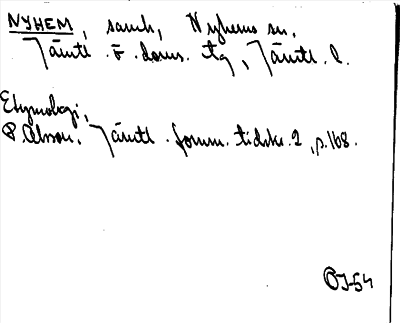 NYHEM, samh, Nyhems sn,
Jämtl. ö. doms. tg, Jämtl. l.
Etymologi,
P. Olsson, Jämtl. fornm. tidskr. 2, p. 168.
OJ-54